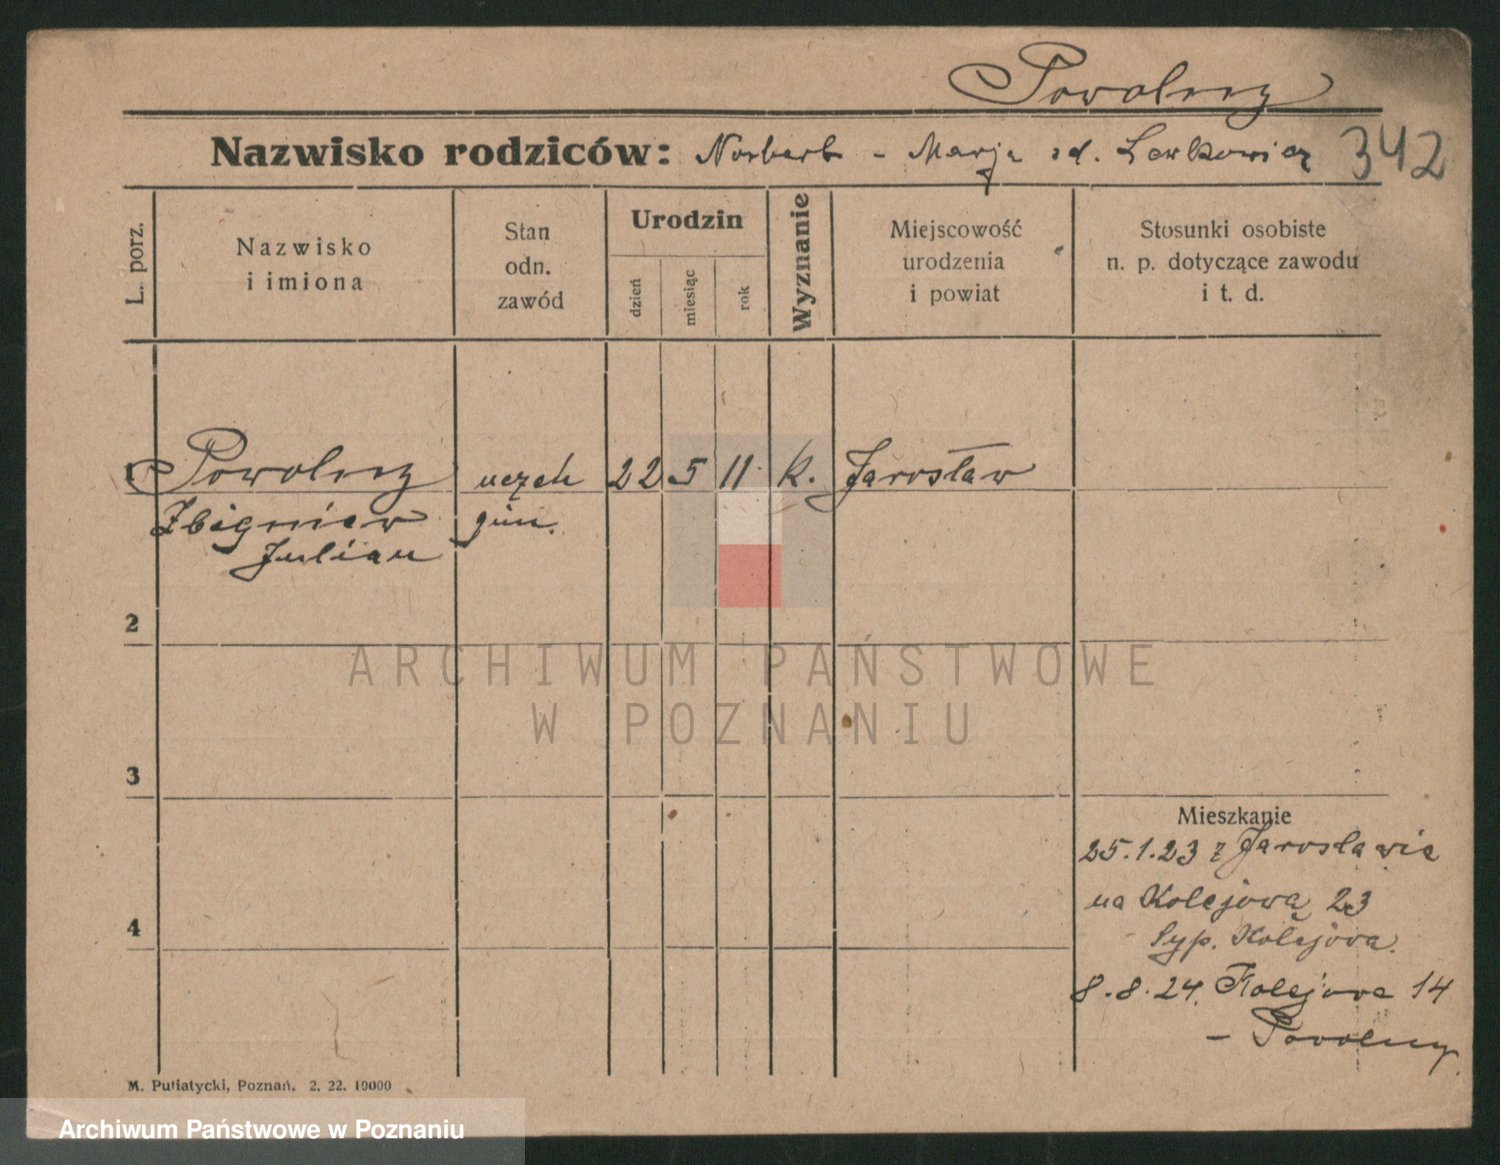 Powolny
Nazwisko rodziców: Norbert - Marja zd. Lewkowicz 342
L. porz.
Nazwisko
i imiona
Stan
odn.
zawód
Urodzin
dzień
miesiąc
rok
Wyznanie
Miejscowość
urodzenia
i powiat
Stosunki osobiste
n. p. dotyczące zawodu
i t. d.
1 Powolny uczeń 22 5 11. k. Jarosław
Zbigniew gim.
Julian
2
3
4
Mieszkanie
25.1.23 z Jarosławia
na Kolejowa 23
Kolejowa.
8.8.24. Kolejowa 14
- Powolny
M. Putiatycki, Poznań. 2. 22. 10000
ARCHIWUM PAŃSTWOWE
W POZNANIU
Archiwum Państwowe w Poznaniu